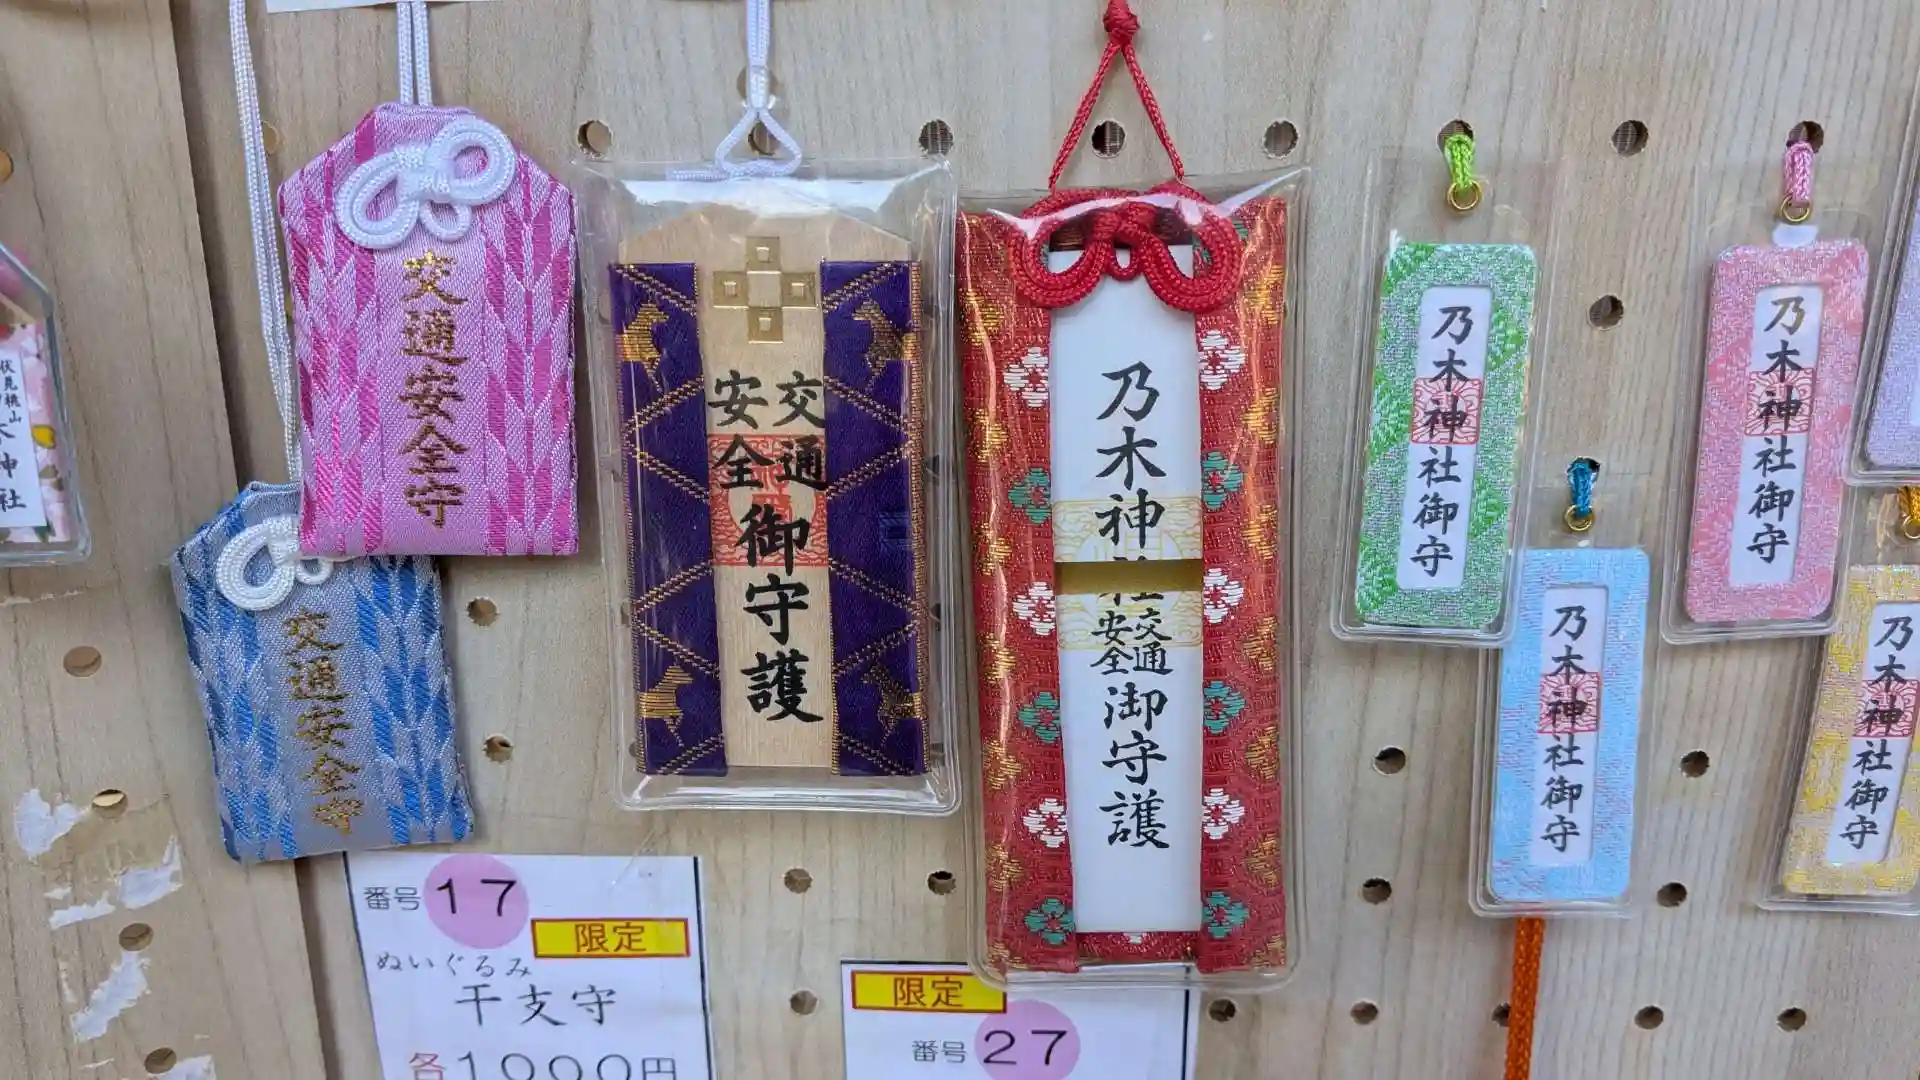 伏見桃山
神社
交通安全守
交通安全守
交通
安全
御守護
乃木神社
交通
安全
御守護
乃木神社御守
乃木神社御守
乃木神社御守
乃木神社御守
番号 17
限定
ぬいぐるみ
干支守
各1000円
限定
番号 27